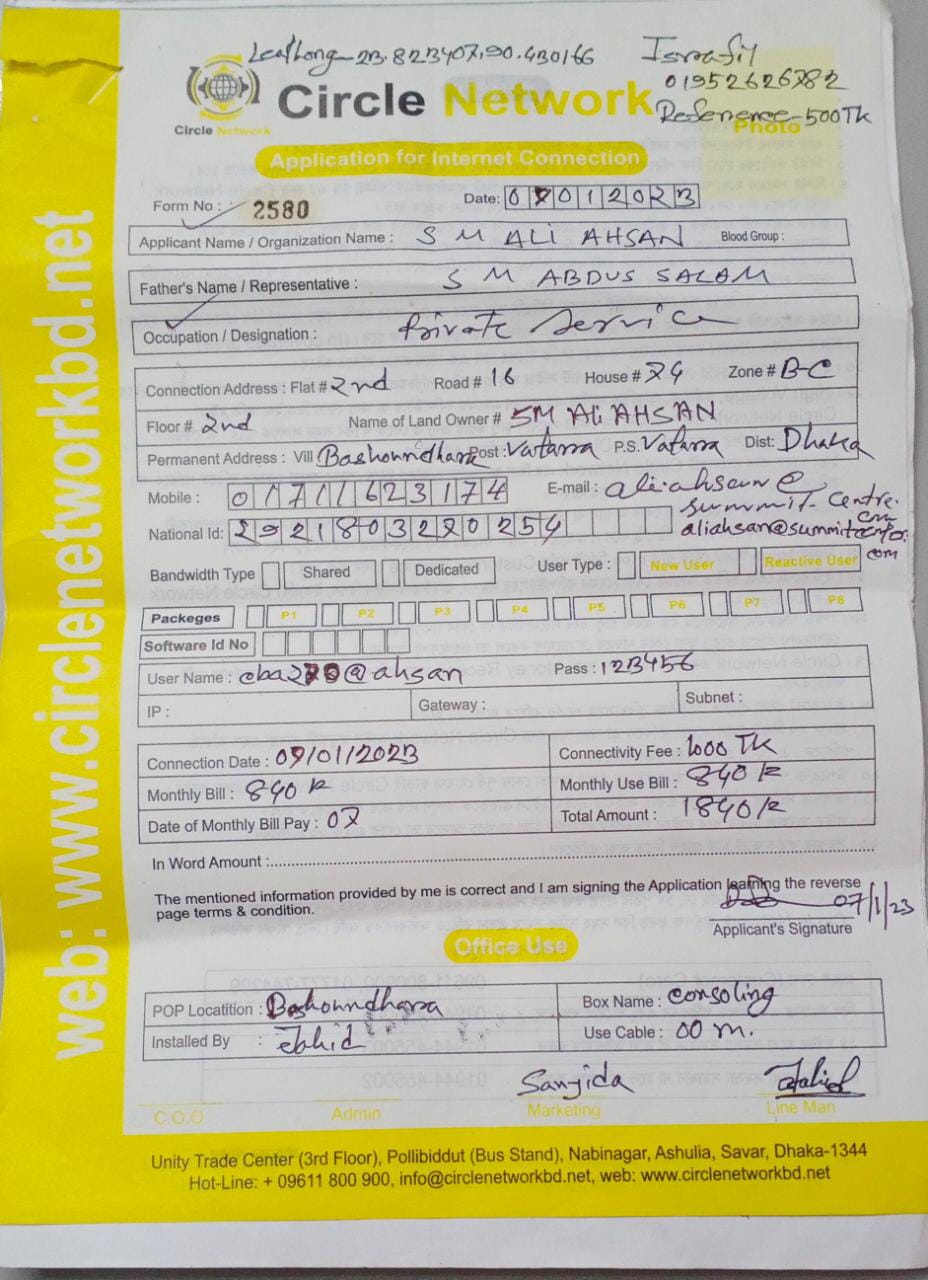 Leat Long-23.823407,90.430166
Israfil
01952626782
Reference-500Tk
Circle Network
Circle Network
Photo
Application for Internet Connection
Form No : 2580
Date: 0 7 0 1 2 0 2 3
Applicant Name / Organization Name : S M ALI AHSAN Blood Group :
Father's Name / Representative : S M ABDUS SALAM
Occupation / Designation : Private Service
Connection Address : Flat # 2nd Road # 16 House # 24 Zone # B-C
Floor # 2nd Name of Land Owner # SM Ali AHSAN
Permanent Address : Vill Bashoundhara Post : Vatarra P.S. Vatarra Dist: Dhaka
Mobile : 01711623174 E-mail : ali.ahsan@
summit-centre.
com
National Id: 2921803220254 aliahsan@summitcentre.
com
Bandwidth Type Shared Dedicated User Type : New User Reactive User
Packeges P1 P2 P3 P4 P5 P6 P7 P8
Software Id No
User Name : cba270@ahsan Pass : 123456
IP : Gateway : Subnet :
Connection Date : 07/01/2023 Connectivity Fee : 1000 TK
Monthly Bill : 840 tk Monthly Use Bill : 840 tk
Date of Monthly Bill Pay : 07 Total Amount : 1840 tk
In Word Amount :
The mentioned information provided by me is correct and I am signing the Application learning the reverse
page terms & condition.
07/1/23
Applicant's Signature
Office Use
POP Locatition : Bashoundhara Box Name : consoling
Installed By : Jahid Use Cable : 00 m.
Sanjida Jahid
C.O.O Admin Marketing Line Man
Unity Trade Center (3rd Floor), Pollibiddut (Bus Stand), Nabinagar, Ashulia, Savar, Dhaka-1344
Hot-Line: + 09611 800 900, info@circlenetworkbd.net, web: www.circlenetworkbd.net
web: www.circlenetworkbd.net